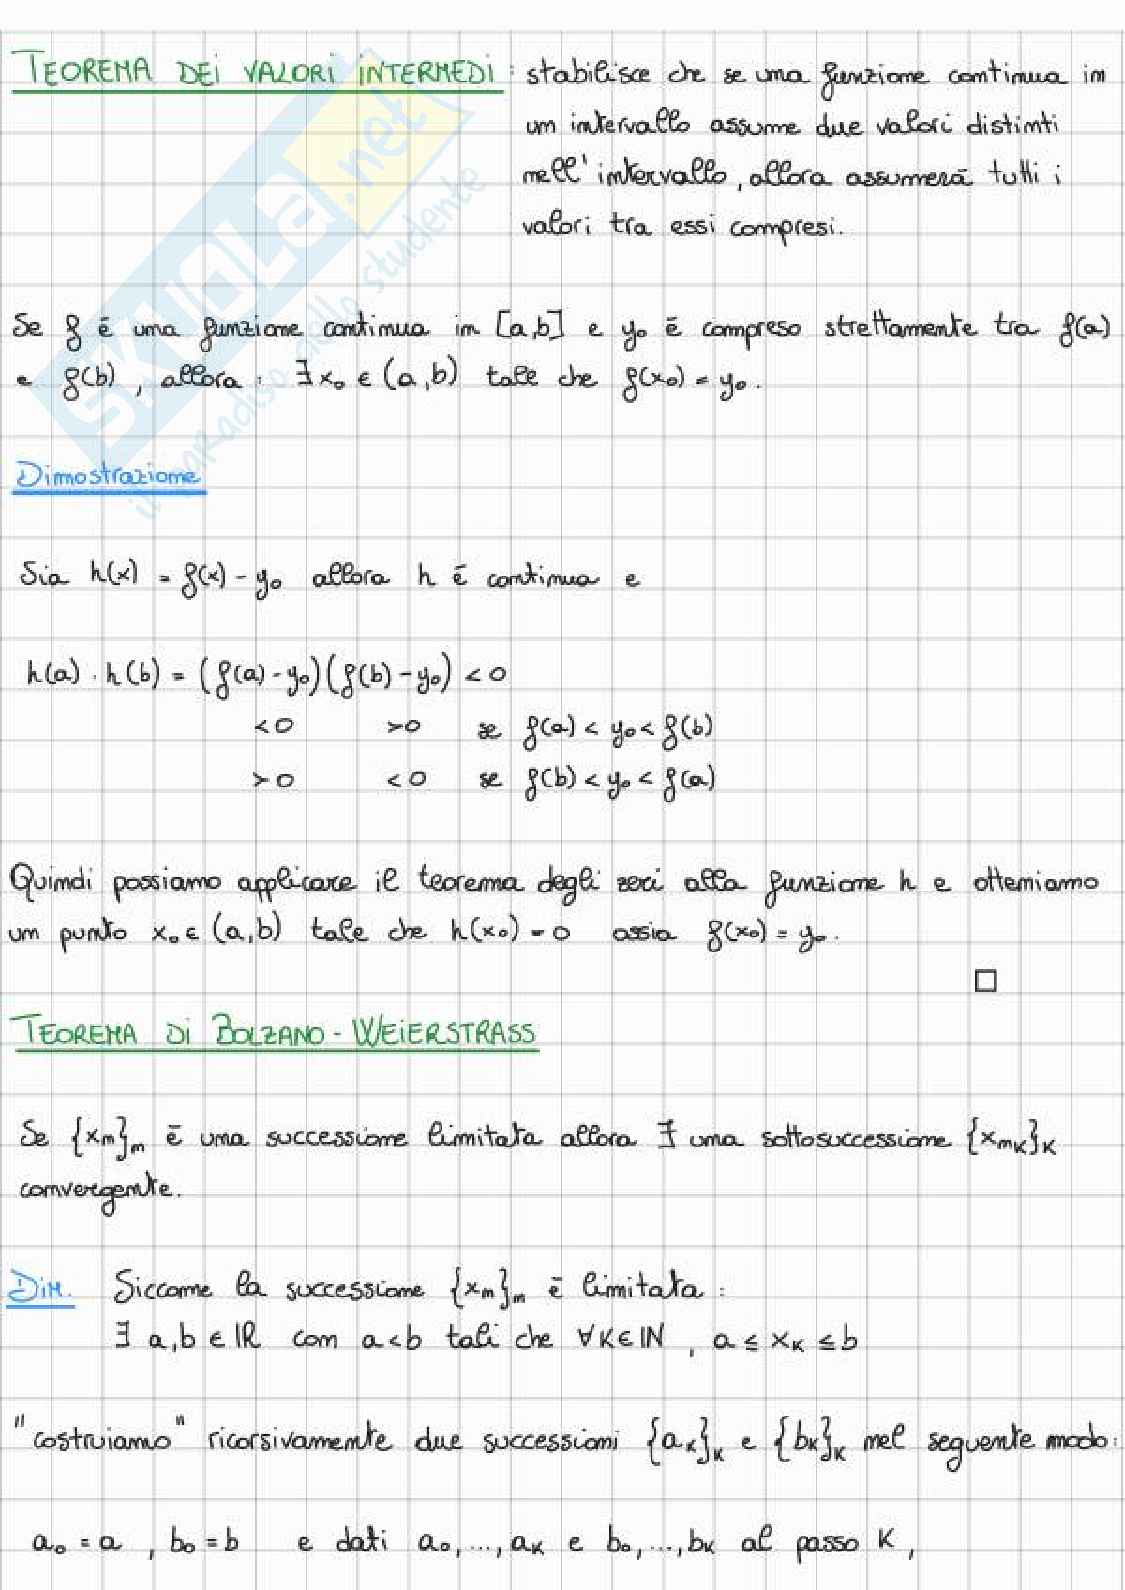 TEOREMA DEI VALORI INTERMEDI : stabilisce che se una funzione continua in
un intervallo assume due valori distinti
nell'intervallo, allora assumerà tutti i
valori tra essi compresi.
Se f è una funzione continua in [a,b] e y₀ è compreso strettamente tra f(a)
e f(b), allora: ∃ x₀ ∈ (a,b) tale che f(x₀) = y₀.
Dimostrazione
Sia h(x) = f(x) - y₀ allora h è continua e
h(a) · h(b) = (f(a) - y₀)(f(b) - y₀) < 0
<0 >0 se f(a) < y₀ < f(b)
>0 <0 se f(b) < y₀ < f(a)
Quindi possiamo applicare il teorema degli zeri alla funzione h e otteniamo
un punto x₀ ∈ (a,b) tale che h(x₀) = 0 ossia f(x₀) = y₀.
□
TEOREMA DI BOLZANO - WEIERSTRASS
Se {xₙ}ₙ è una successione limitata allora ∃ una sottosuccessione {xₙₖ}ₖ
convergente.
DIM. Siccome la successione {xₙ}ₙ è limitata :
∃ a,b ∈ ℝ con a<b tali che ∀K∈ℕ , a ≤ xₖ ≤ b
"costruiamo" ricorsivamente due successioni {aₖ}ₖ e {bₖ}ₖ nel seguente modo:
a₀ = a , b₀ = b e dati a₀,...,aₖ e b₀,...,bₖ al passo K ,
SKUOLA.net
il paradiso dello studente